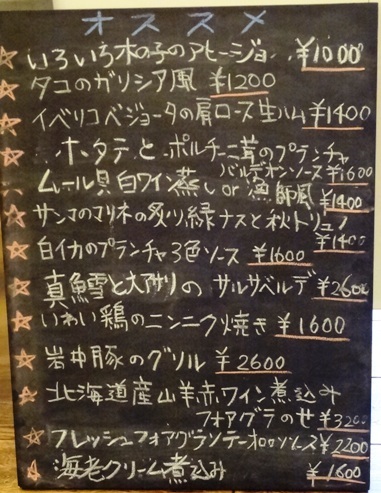 オススメ
☆ いろいろ木の子のアヒージョ ¥1000
☆ タコのガリシア風 ¥1200
☆ イベリコベジョータの肩ロース生ハム ¥1400
☆ ホタテとポルチーニ茸のプランチャ
バルデオンソース ¥1600
☆ ムール貝白ワイン蒸し or 漁師風 ¥1400
☆ サンマのマリネの炙り緑ナスと秋トリュフ
¥1400
☆ 白イカのプランチャ3色ソース ¥1600
☆ 真鱈と大アサリのサルサベルデ ¥2600
☆ いわい鶏のニンニク焼き ¥1600
☆ 岩中豚のグリル ¥2600
☆ 北海道産山羊赤ワイン煮込み
フォアグラのせ ¥3200
☆ フレッシュフォアグランテーホロソース ¥2200
☆ 海老クリーム煮込み ¥1600